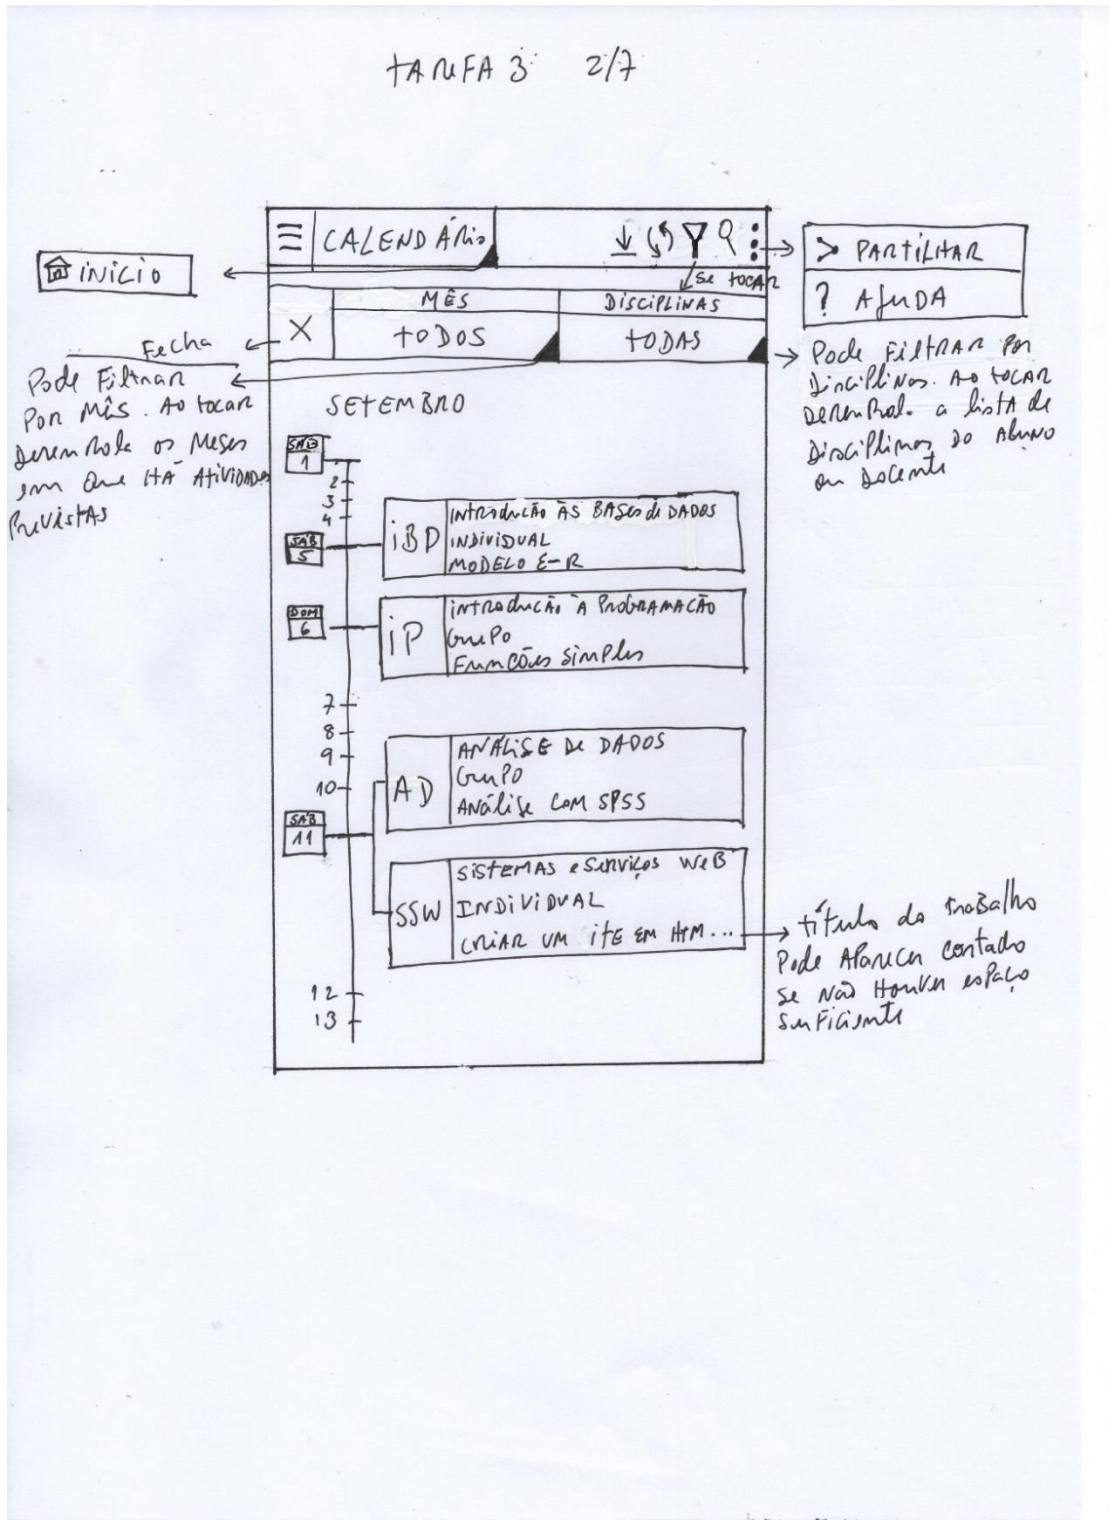 TAREFA 3 2/7
CALENDÁRIO
INÍCIO
> PARTILHAR
? AJUDA
se tocar
MÊS
DISCIPLINAS
X
TODOS
TODAS
Fecha
Pode Filtrar
Por Mês. Ao tocar
Desenrola os Meses
em que HÁ Atividades
Previstas
Pode FILTRAR Por
Disciplinas. Ao tocar
Desenrola a lista de
Disciplinas do Aluno
ou Docente
SETEMBRO
SÁB
1
2
3
4
SÁB
5
iBD
INTRODUÇÃO ÀS BASES de DADOS
INDIVIDUAL
MODELO E-R
DOM
6
iP
INTRODUÇÃO À PROGRAMAÇÃO
GRUPO
FUNÇÕES SIMPLES
7
8
9
10
AD
ANÁLISE DE DADOS
GRUPO
ANÁLISE COM SPSS
SÁB
11
SSW
SISTEMAS e SERVIÇOS WEB
INDIVIDUAL
CRIAR UM ITE EM HTM...
título do trabalho
Pode Aparecer cortado
se Não Houver espaço
suficiente
12
13